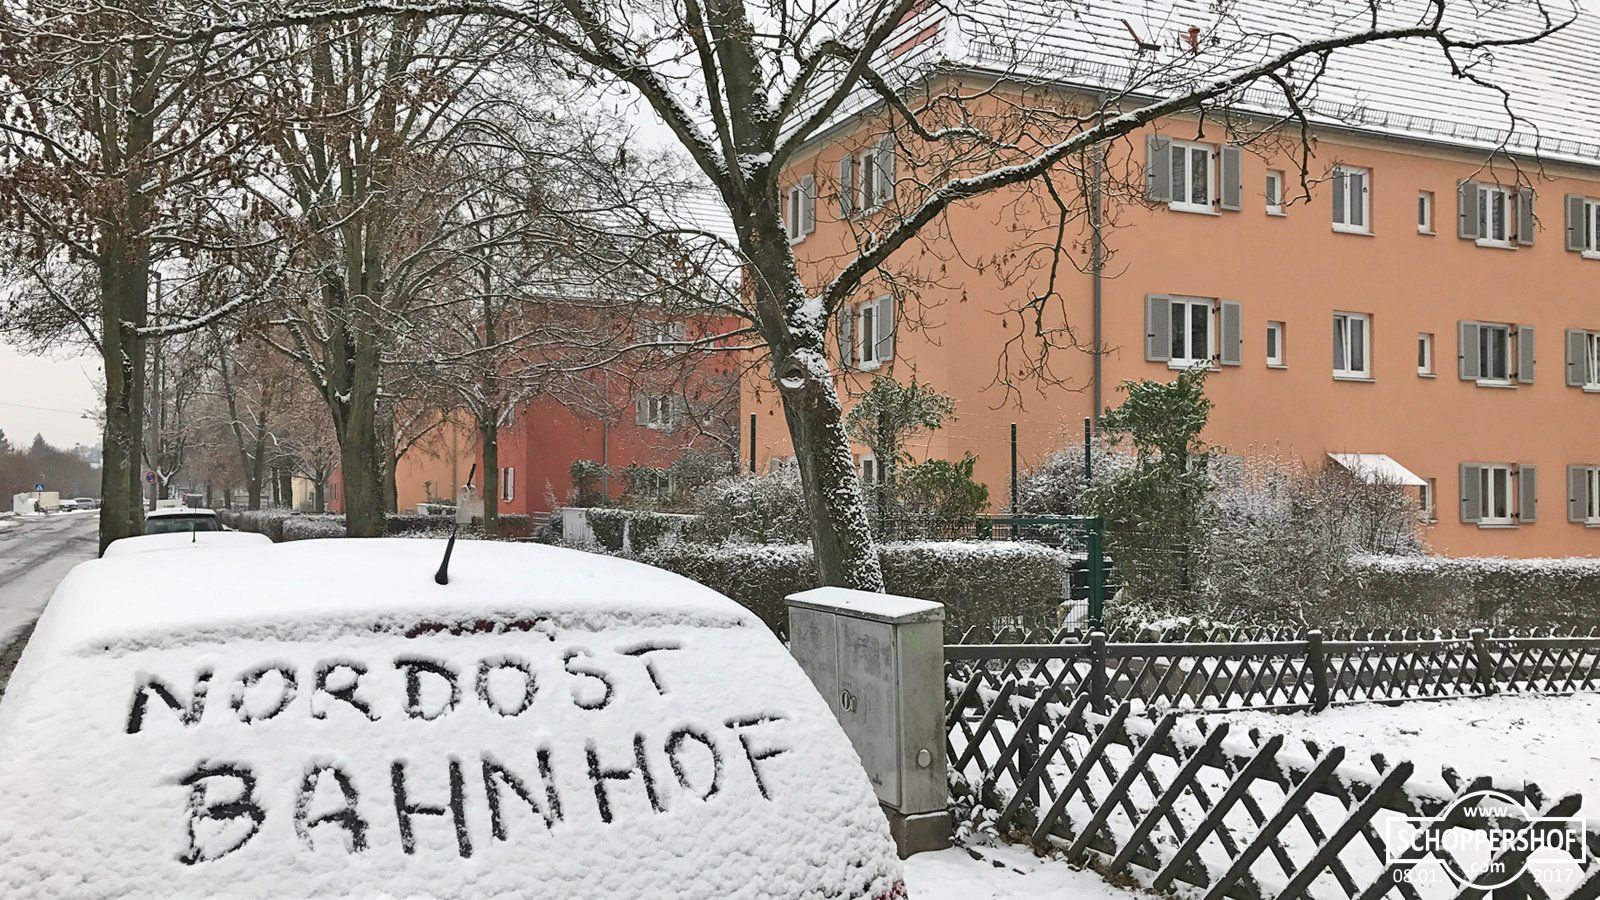 NORDOST
BAHNHOF
www.
SCHOPPERSHOF
.com
08.01.
2017